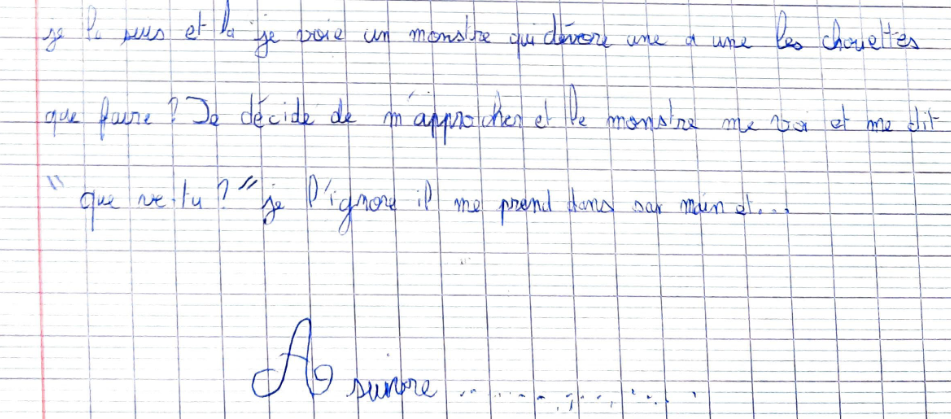 je le suis et la je voie un monstre qui dévore une a une les chouettes
que faire ? Je décide de m'approcher et le monstre me voi et me dit
" que ve tu ? " je l'ignore il me prend dans sar main et...
A suivre ..................